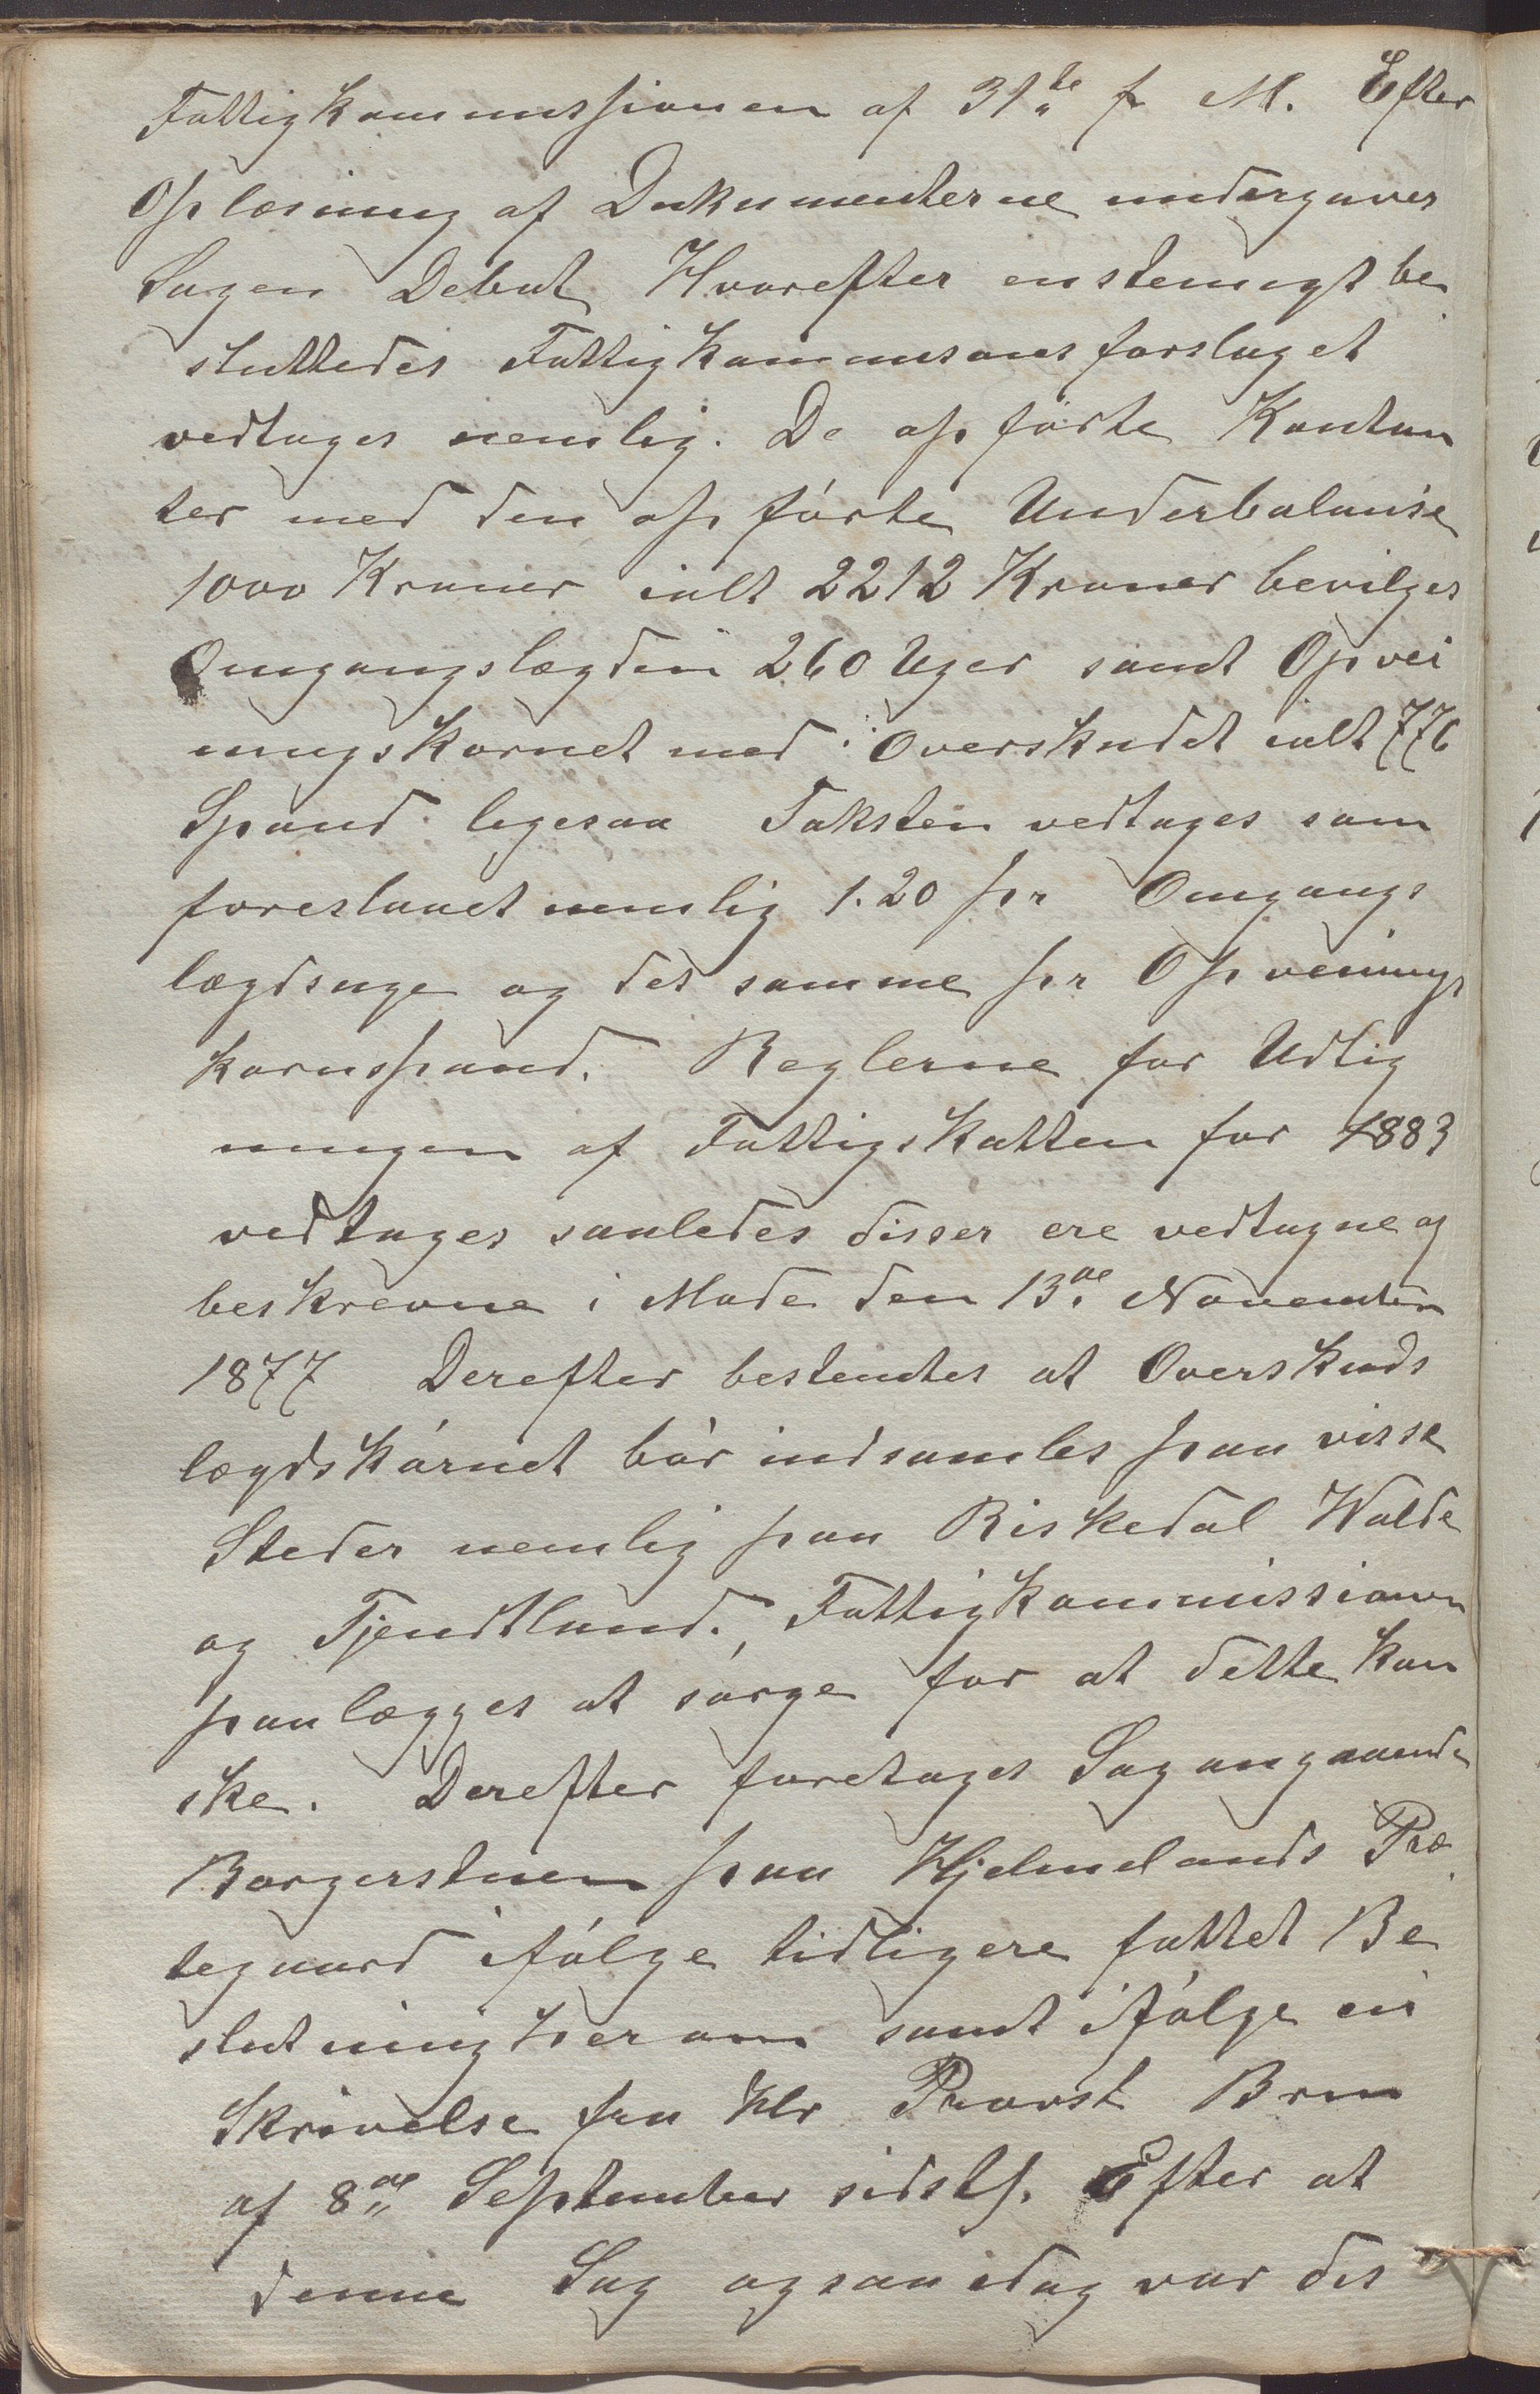 Fattigkommissionen af 31te f M. Efter
Oplæsning af Dokumenterne undergaves
Sagen Debat Hvorefter enstemigt be
sluttedes Fattigkommisons forslaget
vedtages nemlig. De opførte Kontan
ter med den opførte Underbalanse
1000 Kroner ialt 2212 Kroner bevilges
Omgangslægden 260 Uger samt Opvei
ningskornet med i Overskudet ialt 776
Spand ligesaa Taksten vedtages som
foreslaaet nemlig 1.20 pr Omgangs
lægdsuge og det samme pr Opveinings
kornspand. Reglerne for Udlig
ningen af Fattigskatten for 1883
vedtages saaledes disser ere vedtagne og
beskrevne i Møde den 13de November
1877 Derefter bestemtes at Overskuds
lægdskornet bør indsamles paa visse
Steder nemlig paa Riskedal Walde
og Tjendtland. Fattigkommissionen
paalægges at sørge for at dette kan
ske. Derefter foretages Sag angaaende
Borgerstuen paa Hjelmelands Præ
tegaard ifølge tidligere fattet Be
slutning herom samt ifølge en
Skrivelse fra Hr Provst Brun
af 8de September sidstl. Efter at
denne Sag ogsaa idag var det